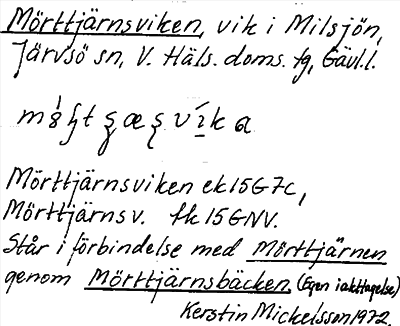 Mörttjärnsviken, vik i Milsjön,
Järvsö sn, V. Häls. doms. tg, Gävl.l.
Mörttjärnsviken ek 15G7c,
Mörttjärnsv. tk 15GNV.
Står i förbindelse med Mörttjärnen
genom Mörttjärnsbäcken. (Egen iakttagelse)
Kerstin Mickelsson 1972.